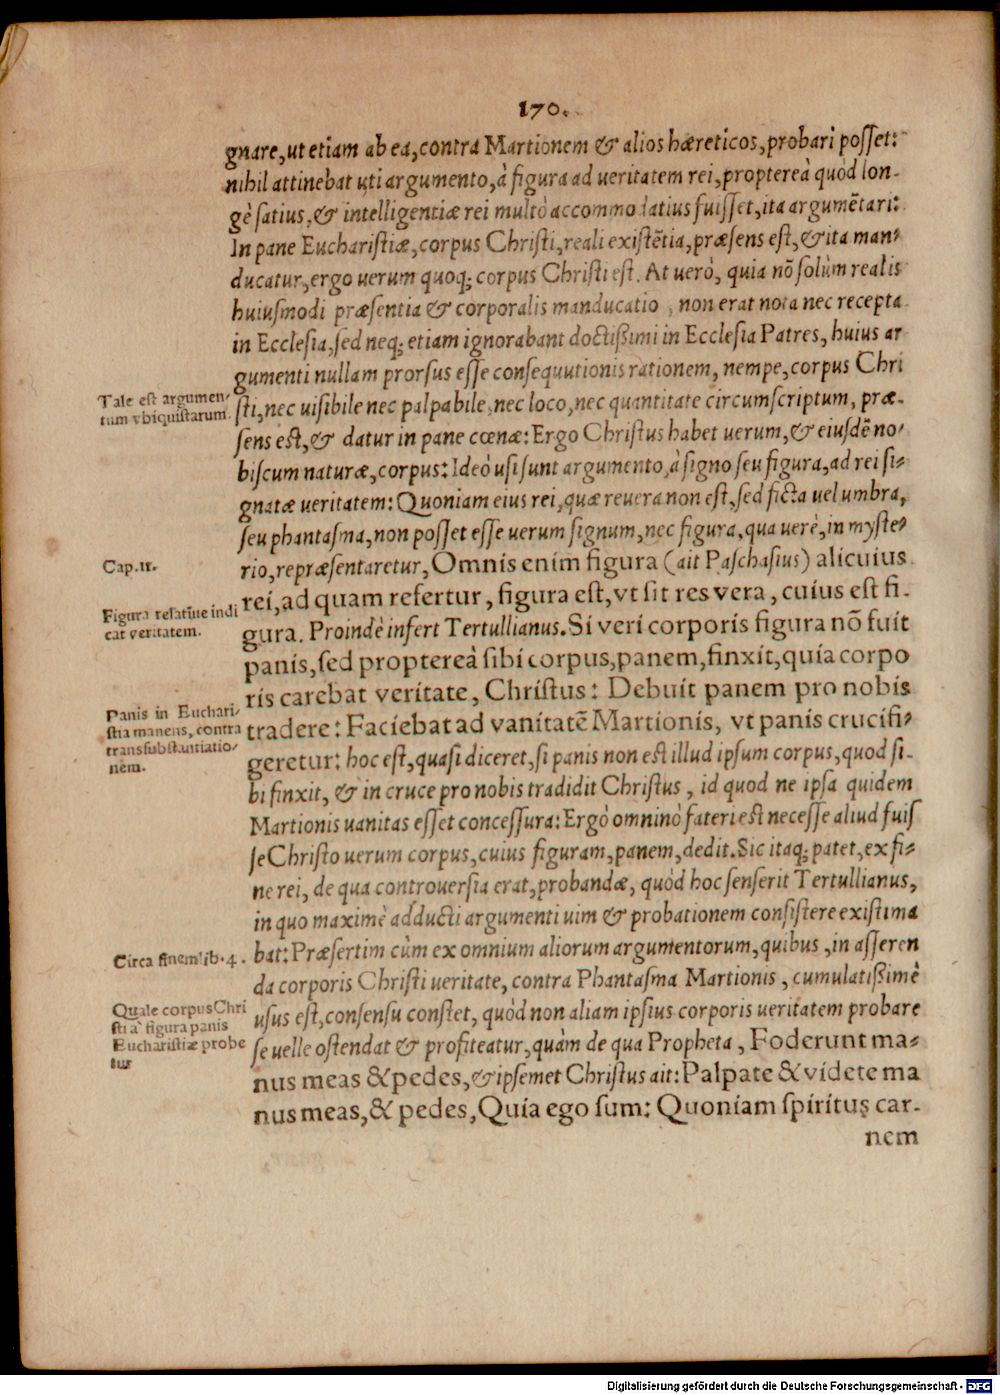 170.
gnare,ut etiam ab ea,contra Martionem & alios hæreticos,probari posſet:
nihil attinebat uti argumento,à figura ad ueritatem rei,proptereà quòd lon-
gè ſatius,& intelligentiæ rei multò accommodatius fuiſſet,ita argumētari:
In pane Euchariſtiæ,corpus Chriſti,reali exiſtētia,præſens eſt,& ita man-
ducatur,ergo uerum quoq; corpus Chriſti eſt. At uerò, quia nō ſolùm realis
huiuſmodi præſentia & corporalis manducatio , non erat nota nec recepta
in Eccleſia,ſed neq; etiam ignorabant doctißimi in Eccleſia Patres, huius ar
gumenti nullam prorſus eſſe conſequutionis rationem, nempe,corpus Chri
Tale est argumen-
tum vbiquistarum.
ſti,nec uiſibile nec palpabile,nec loco,nec quantitate circumſcriptum, præ-
ſens eſt,& datur in pane cœnæ: Ergo Chriſtus habet uerum,& eiuſdē no-
biſcum naturæ,corpus: Ideò uſi ſunt argumento,à ſigno ſeu figura,ad rei ſi-
gnatæ ueritatem: Quoniam eius rei,quæ reuera non eſt,ſed ficta uel umbra,
ſeu phantaſma,non poſſet eſſe uerum ſignum,nec figura,qua uerè,in myſte-
Cap.11.
rio,repræſentaretur, Omnis enim figura (ait Paſchaſius) alicuius
Figura relatiue indi
cat veritatem.
rei,ad quam refertur, figura eſt,vt ſit res vera, cuius eſt fi-
gura. Proindè infert Tertullianus. Si veri corporis figura nō fuit
panis,ſed proptereà ſibi corpus,panem,finxit,quia corpo
ris carebat veritate, Chriſtus: Debuit panem pro nobis
Panis in Euchari-
ſtia manens, contra
transſubstantiatio-
nem.
tradere: Faciebat ad vanitatē Martionis, vt panis crucifi-
geretur: hoc eſt,quaſi diceret,ſi panis non eſt illud ipſum corpus,quod ſi-
bi finxit, & in cruce pro nobis tradidit Chriſtus, id quod ne ipſa quidem
Martionis uanitas eſſet conceſſura: Ergò omninò fateri eſt neceſſe aliud fuiſ
ſe Chriſto uerum corpus,cuius figuram,panem,dedit.Sic itaq; patet,ex fi-
ne rei, de qua controuerſia erat,probandæ, quòd hoc ſenſerit Tertullianus,
in quo maximè adducti argumenti uim & probationem conſiſtere exiſtima
Circa finem lib.4.
bat: Præſertim cùm ex omnium aliorum argumentorum,quibus ,in aſſeren
da corporis Chriſti ueritate, contra Phantaſma Martionis, cumulatißimè
Quale corpus Chri
ſti à figura panis
Euchariſtiæ probe
tur
uſus eſt,conſenſu conſtet, quòd non aliam ipſius corporis ueritatem probare
ſe uelle oſtendat & profiteatur,quàm de qua Propheta, Foderunt ma-
nus meas & pedes,& ipſemet Chriſtus ait: Palpate & videte ma
nus meas,& pedes, Quia ego ſum: Quoniam ſpiritus car-
nem
Digitalisierung gefördert durch die Deutsche Forschungsgemeinschaft - DFG